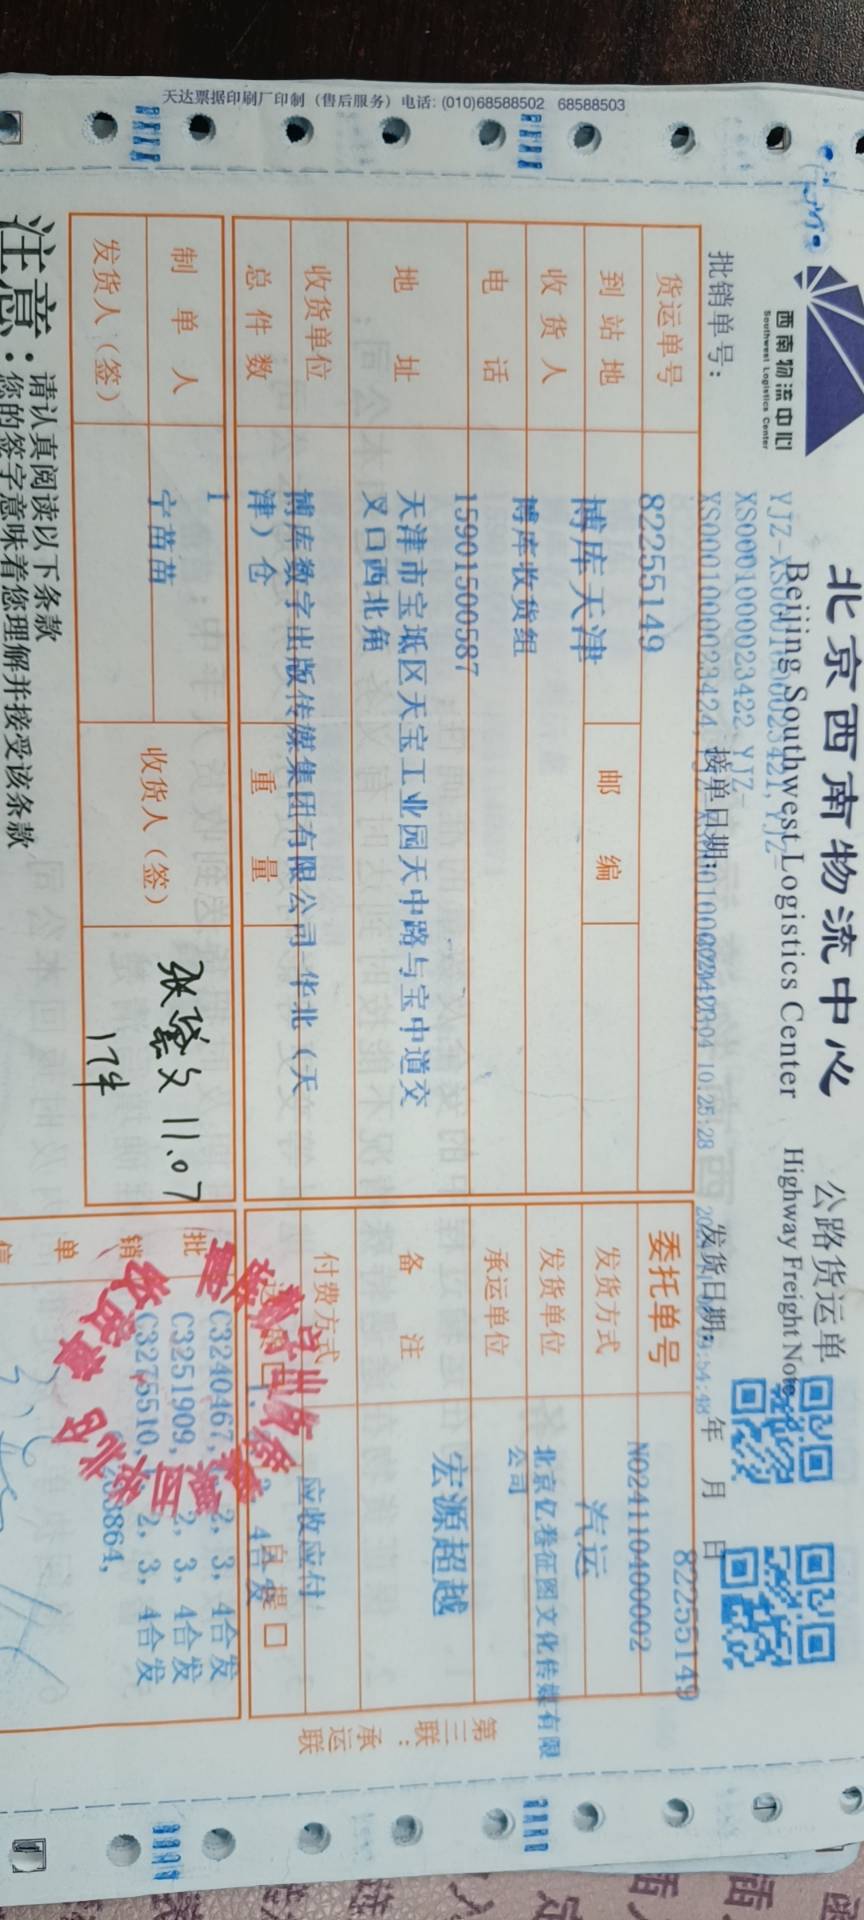 天达票据印刷厂印制（售后服务）电话: (010)68588502 68588503
西南物流中心
Southwest Logistics Center
北京西南物流中心
Beijing Southwest Logistics Center
公路货运单
Highway Freight Note
批销单号：
XS00010000023422, YJZ-
XS00010000023424,
接单日期：
10:25:28
发货日期：
年 月 日
货运单号 82255149
到站地 博库天津 邮编
收货人 博库收货组
电话 15901500587
地址 天津市宝坻区天宝工业园天中路与宝中道交
叉口西北角
收货单位 博库数字出版传媒集团有限公司-华北（天
津）仓
总件数 1 重量
委托单号 82255149
NO24110400002
发货方式 汽运
发货单位
承运单位 宏源超越
备注
付费方式 应收应付
自提 □
制单人 宁苗苗
收货人（签） 11.07
17件
发货人（签）
批销单信
C3240467, 2, 3, 4合发
C3251909, 2, 3, 4合发
C3275510, 2, 3, 4合发
第三联：承运联
注意：
请认真阅读以下条款
您的签字意味着您理解并接受该条款